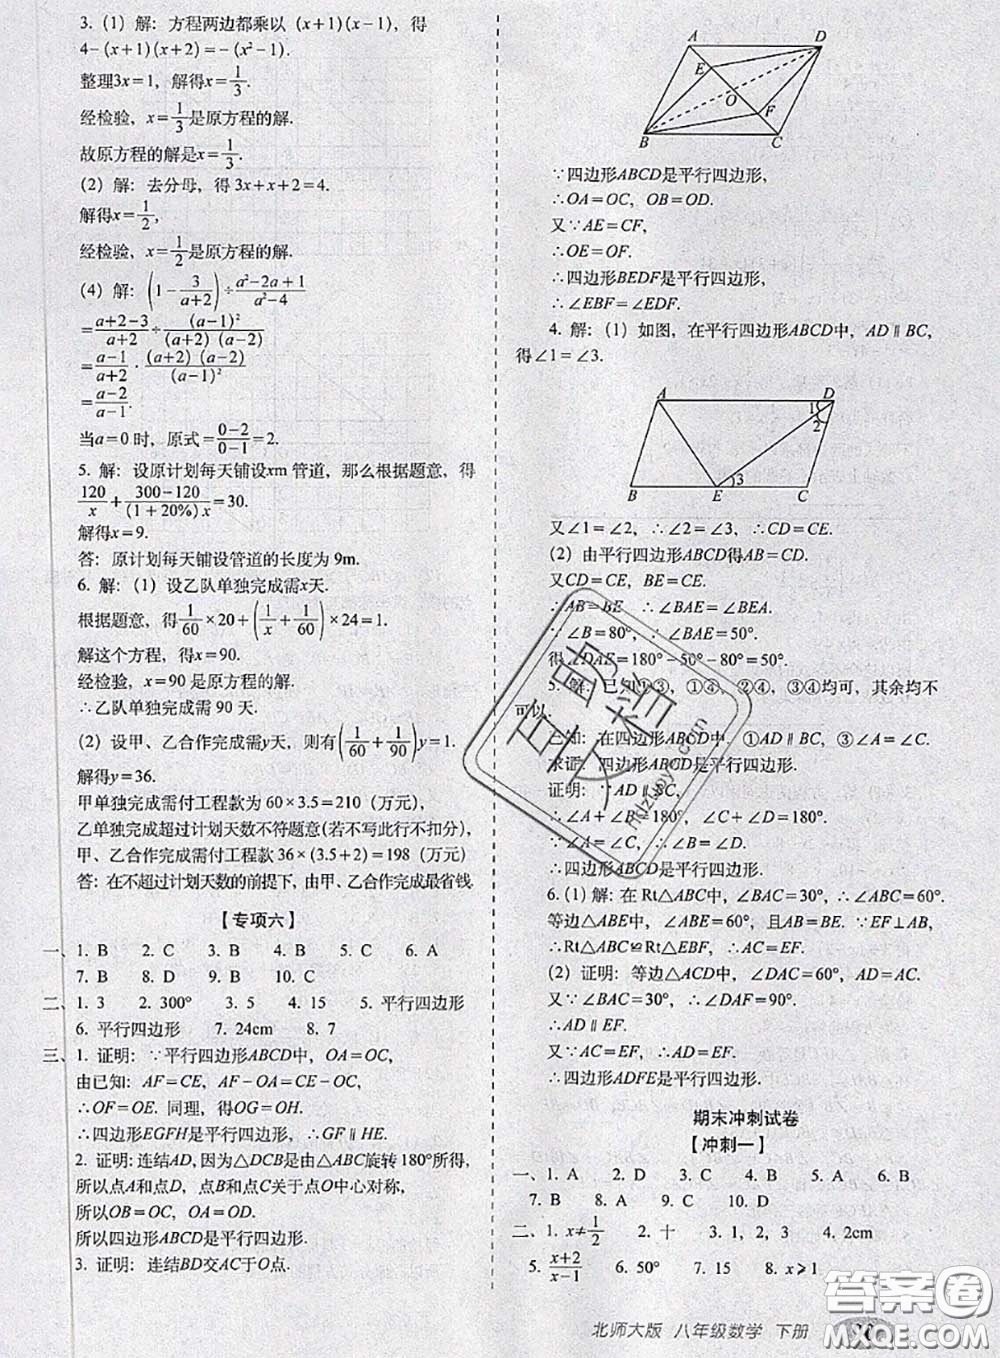 3. (1) 解：方程两边都乘以 (x+1)(x-1)，得
4-(x+1)(x+2)=-(x²-1).
整理3x=1，解得x=1/3.
经检验，x=1/3是原方程的解.
故原方程的解是x=1/3.
(2) 解：去分母，得 3x+x+2=4.
解得x=1/2，
经检验，x=1/2是原方程的解.
(4) 解：(1-3/(a+2))÷(a²-2a+1)/(a²-4)
=(a+2-3)/(a+2)÷(a-1)²/((a+2)(a-2))
=(a-1)/(a+2)·(a+2)(a-2)/(a-1)²
=(a-2)/(a-1).
当a=0 时，原式=(0-2)/(0-1)=2.
5. 解：设原计划每天铺设xm 管道，那么根据题意，得
120/x+(300-120)/((1+20%)x)=30.
解得x=9.
答：原计划每天铺设管道的长度为 9m.
6. 解：(1) 设乙队单独完成需x天.
根据题意，得1/60×20+(1/x+1/60)×24=1.
解这个方程，得x=90.
经检验，x=90 是原方程的解.
∴乙队单独完成需 90 天.
(2) 设甲、乙合作完成需y天，则有(1/60+1/90)y=1.
解得y=36.
甲单独完成需付工程款为 60×3.5=210（万元），
乙单独完成超过计划天数不符题意(若不写此行不扣分)，
甲、乙合作完成需付工程款 36×(3.5+2)=198（万元）
答：在不超过计划天数的前提下，由甲、乙合作完成最省钱.
【专项六】
一、1. B 2. C 3. B 4. B 5. C 6. A
7. B 8. D 9. B 10. C
二、1. 3 2. 300° 3. 5 4. 15 5. 平行四边形
6. 平行四边形 7. 24cm 8. 7
三、1. 证明：∵平行四边形ABCD中，OA=OC，
由已知：AF=CE，AF-OA=CE-OC，
∴OF=OE. 同理，得OG=OH.
∴四边形EGFH是平行四边形，∴GF∥HE.
2. 证明：连结AD，因为△DCB是由△ABC旋转180°所得，
所以点A和点D，点B和点C关于点O中心对称，
所以OB=OC，OA=OD.
所以四边形ABCD是平行四边形.
3. 证明：连结BD交AC于O点.
A D
E
O
F
B C
∵四边形ABCD是平行四边形，
∴OA=OC，OB=OD.
又∵AE=CF，
∴OE=OF.
∴四边形BEDF是平行四边形，
∴∠EBF=∠EDF.
4. 解：(1) 如图，在平行四边形ABCD中，AD∥BC，
得∠1=∠3.
A D
1
2
3
B E C
又∠1=∠2，∴∠2=∠3，∴CD=CE.
(2) 由平行四边形ABCD得AB=CD.
又CD=CE，BE=CE.
∴AB=BE ∴∠BAE=∠BEA.
∵∠B=80°，∴∠BAE=50°.
得∠DAE=180°-50°-80°=50°.
5. 解：已知①③，①④，②④，③④均可，其余均不
可以.
已知：在四边形ABCD中，①AD∥BC，③∠A=∠C.
求证：四边形ABCD是平行四边形.
证明：∵AD∥BC，
∴∠A+∠B=180°，∠C+∠D=180°.
∵∠A=∠C，∴∠B=∠D.
∴四边形ABCD是平行四边形.
6. (1) 解：在 Rt△ABC中，∠BAC=30°，∴∠ABC=60°.
等边△ABE中，∠ABE=60°，且AB=BE. ∵EF⊥AB，
∴Rt△ABC≌Rt△EBF，∴AC=EF.
(2) 证明：等边△ACD中，∠DAC=60°，AD=AC.
又∵∠BAC=30°，∴∠DAF=90°.
∴AD∥EF.
又∵AC=EF，∴AD=EF.
∴四边形ADFE是平行四边形.
期末冲刺试卷
【冲刺一】
一、1. A 2. C 3. B 4. B 5. A 6. B
7. B 8. A 9. C 10. D
二、1. x≠1/2 2. 十 3. 1，2，3 4. 2cm
5. (x+2)/(x-1) 6. 50° 7. 15 8. x⩾1
北师大版 八年级数学 下册
答案圈
MXQE.COM